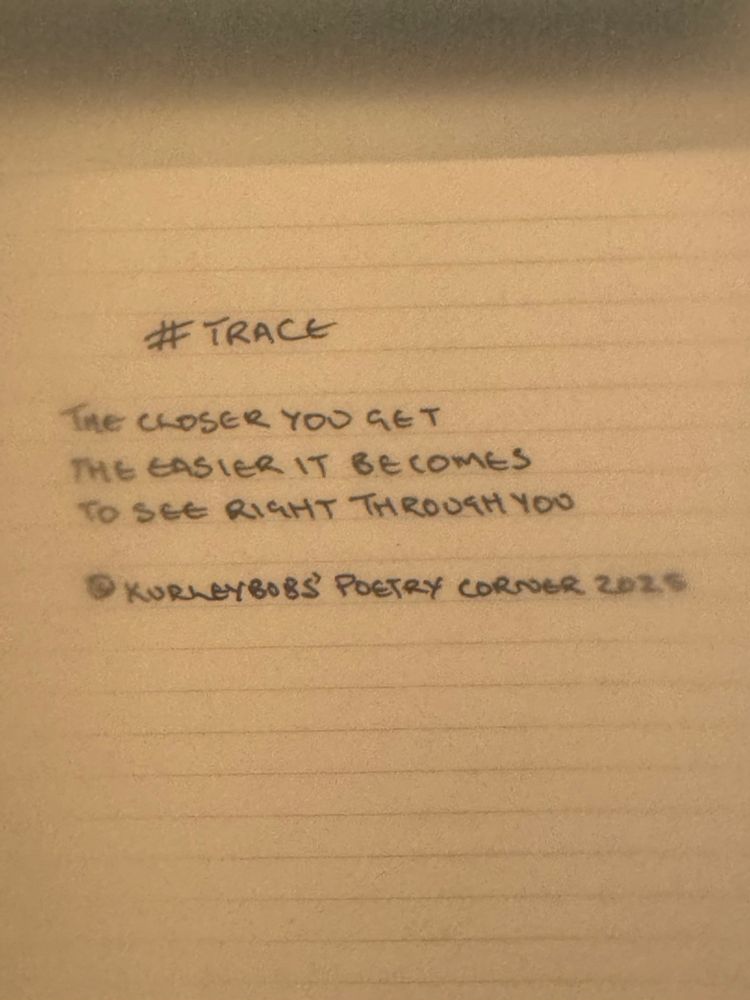 # TRACE
THE CLOSER YOU GET
THE EASIER IT BECOMES
TO SEE RIGHT THROUGH YOU
© KURLEYBOBS' POETRY CORNER 2025